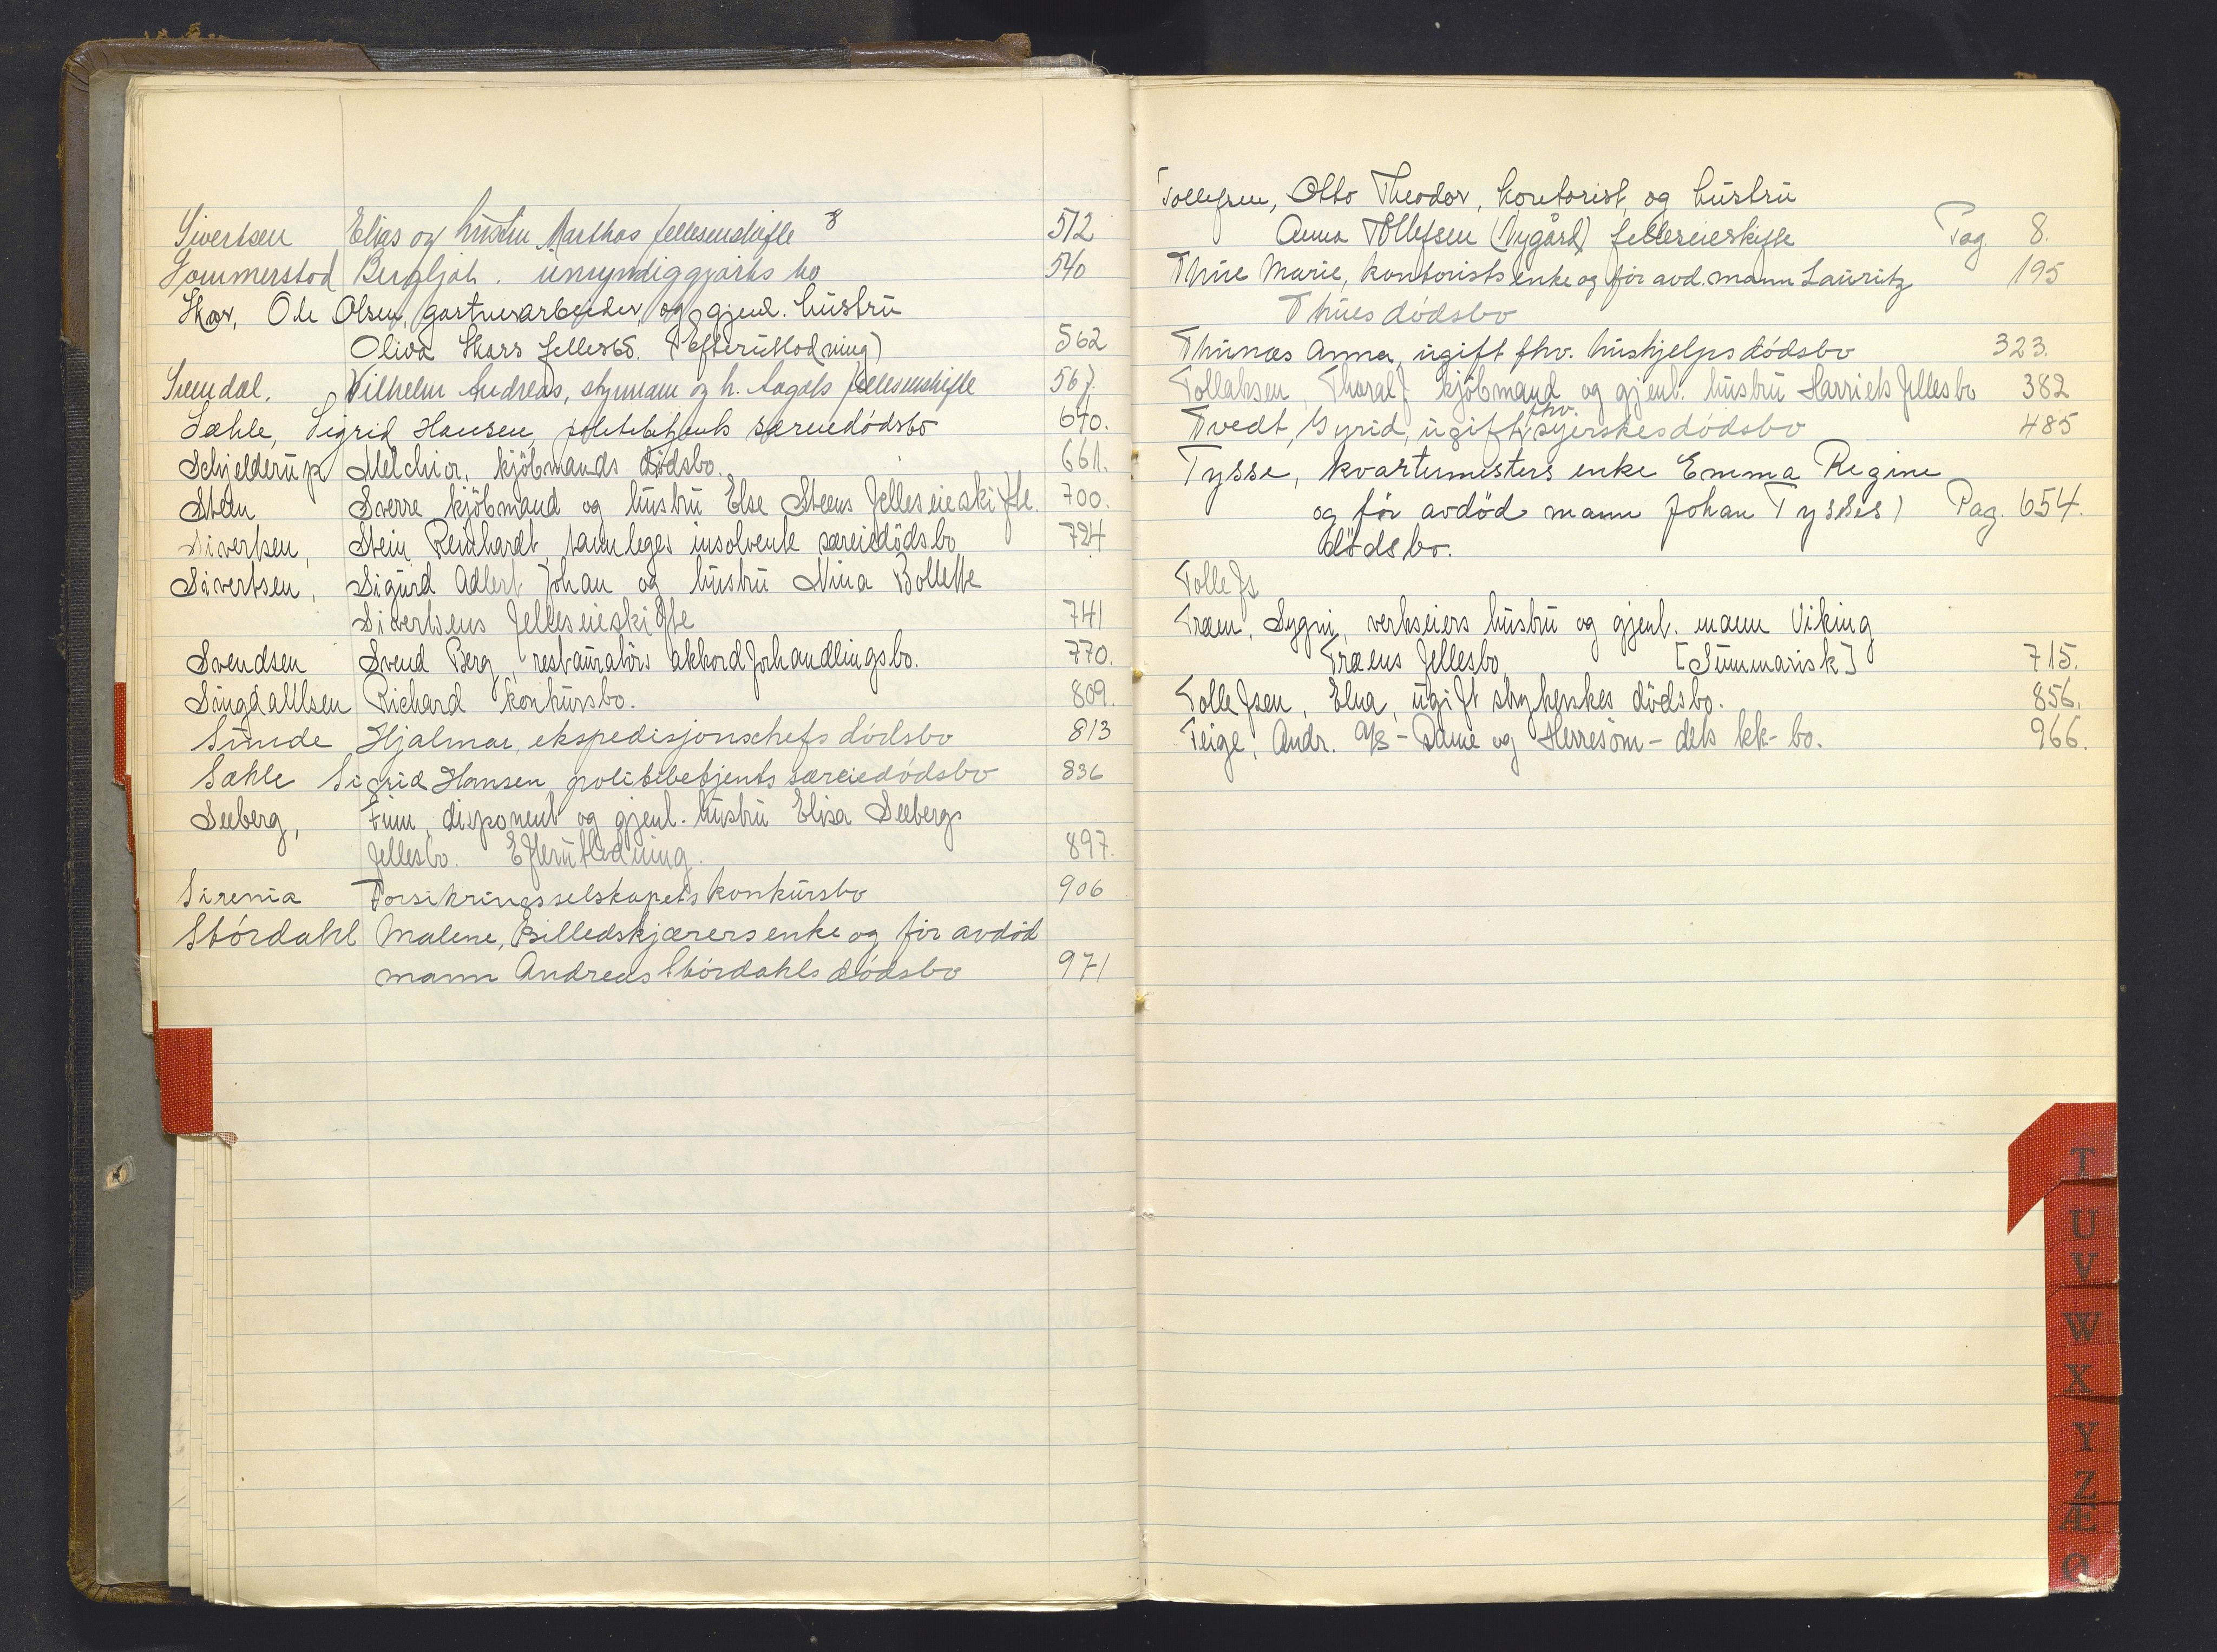 Sivertsen Elias og hustru Marthas felleseieskifte 8 512
Sommerstad Bergljot. umyndiggjorts bo 540
Skar, Ole Olsen, gartnerarbeider, og gjenl. hustru
Oliva Skars fellesbo. (Efterutlodning) 562
Svendal, Wilhelm Andreas, styrmann og h. Aagots felleseieskifte 567.
Sæhle, Sigrid Hansen, politibetjents særeiedödsbo 640.
Schjelderup Melchior, kjöbmands dödsbo. 661.
Steen Sverre kjöbmand og hustru Else Steens felleseieskifte. 700.
Sivertsen, Stein Reinhardt, tannleges insolvente særeiedödsbo 724
Sivertsen, Sigurd Adlert Johan og hustru Nina Bollette
Sivertsens felleseieskifte 741
Svendsen Svend Berg, restauratörs akkordforhandlingsbo. 770.
Singdahlsen Richard konkursbo. 809.
Sunde Hjalmar, ekspedisjonschefs dödsbo 813
Sæhle Sigrid Hansen politibetjents særeiedödsbo 836
Seeberg, Finn, disponent og gjenl. hustru Elisa Seebergs
fellesbo. Efterutlodning. 897.
Sirenia Forsikringsselskapets konkursbo 906
Stördahl Malene, Billedskjærers enke og för avdöd
mann Andreas Stördahls dödsbo 971
Tollefsen, Otto Theodor, kontorist, og hustru
Anna Tollefsen (Nygård) felleseieskifte Pag. 8.
Thue Marie, kontorists enke og för avd. mann Lauritz 195
Thues dödsbo
Thunæs Anna, ugift fhv. hushjelps dödsbo 323.
Tollaksen, Tharalf kjöbmand og gjenl. hustru Harriets fellesbo 382
Tvedt, Gyrid, ugift fhv. syerskes dödsbo 485
Tysse, kvartermesters enke Emma Regine
og för avdöd mann Johan Tysses) Pag. 654.
dödsbo.
Tollefs
Træen, Sygni, verkseiers hustru og gjenl. mann Viking
Træens fellesbo [Summarisk] 715.
Tollefsen, Elna, ugift strykerskes dödsbo. 856.
Teige, Andr. A/S - Dame og Herresöm - dets kk-bo. 966.
T
U
V
W
X
Y
Z
Æ